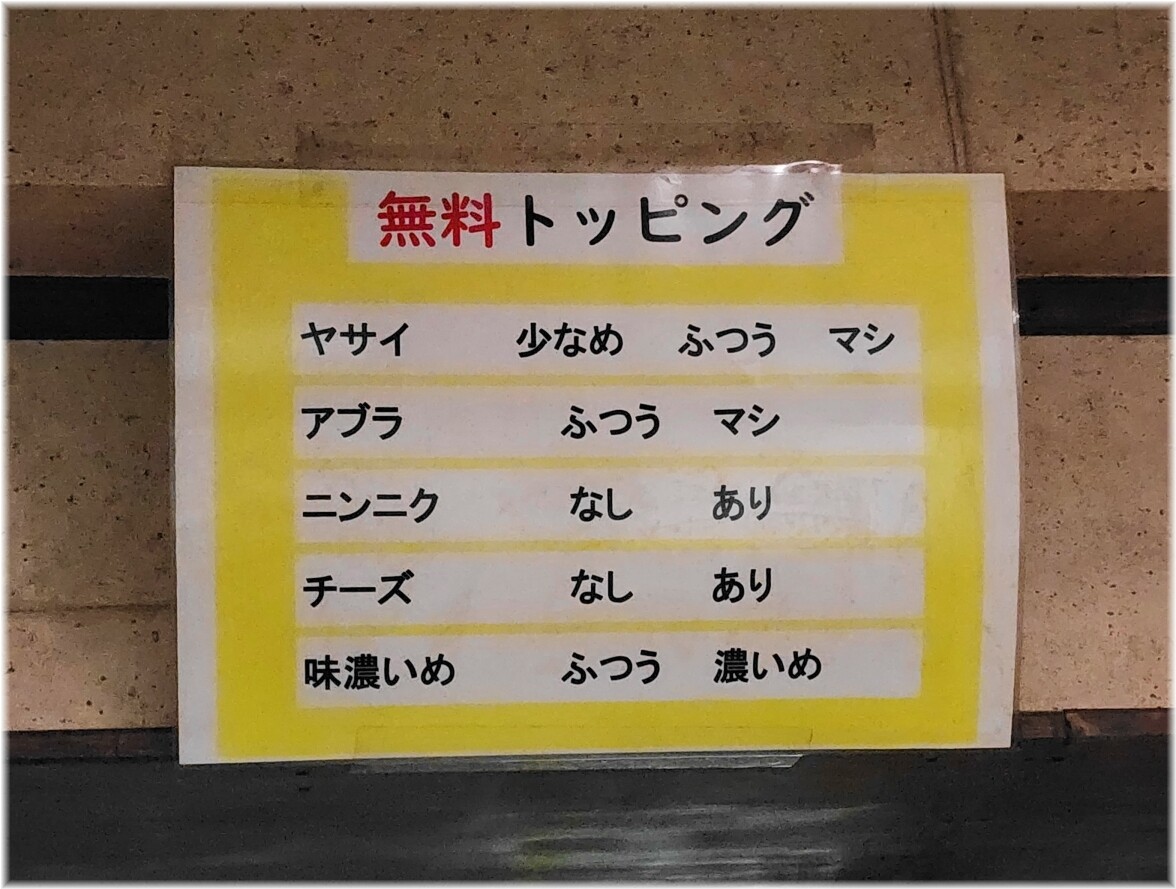 無料トッピング
ヤサイ 少なめ ふつう マシ
アブラ ふつう マシ
ニンニク なし あり
チーズ なし あり
味濃いめ ふつう 濃いめ